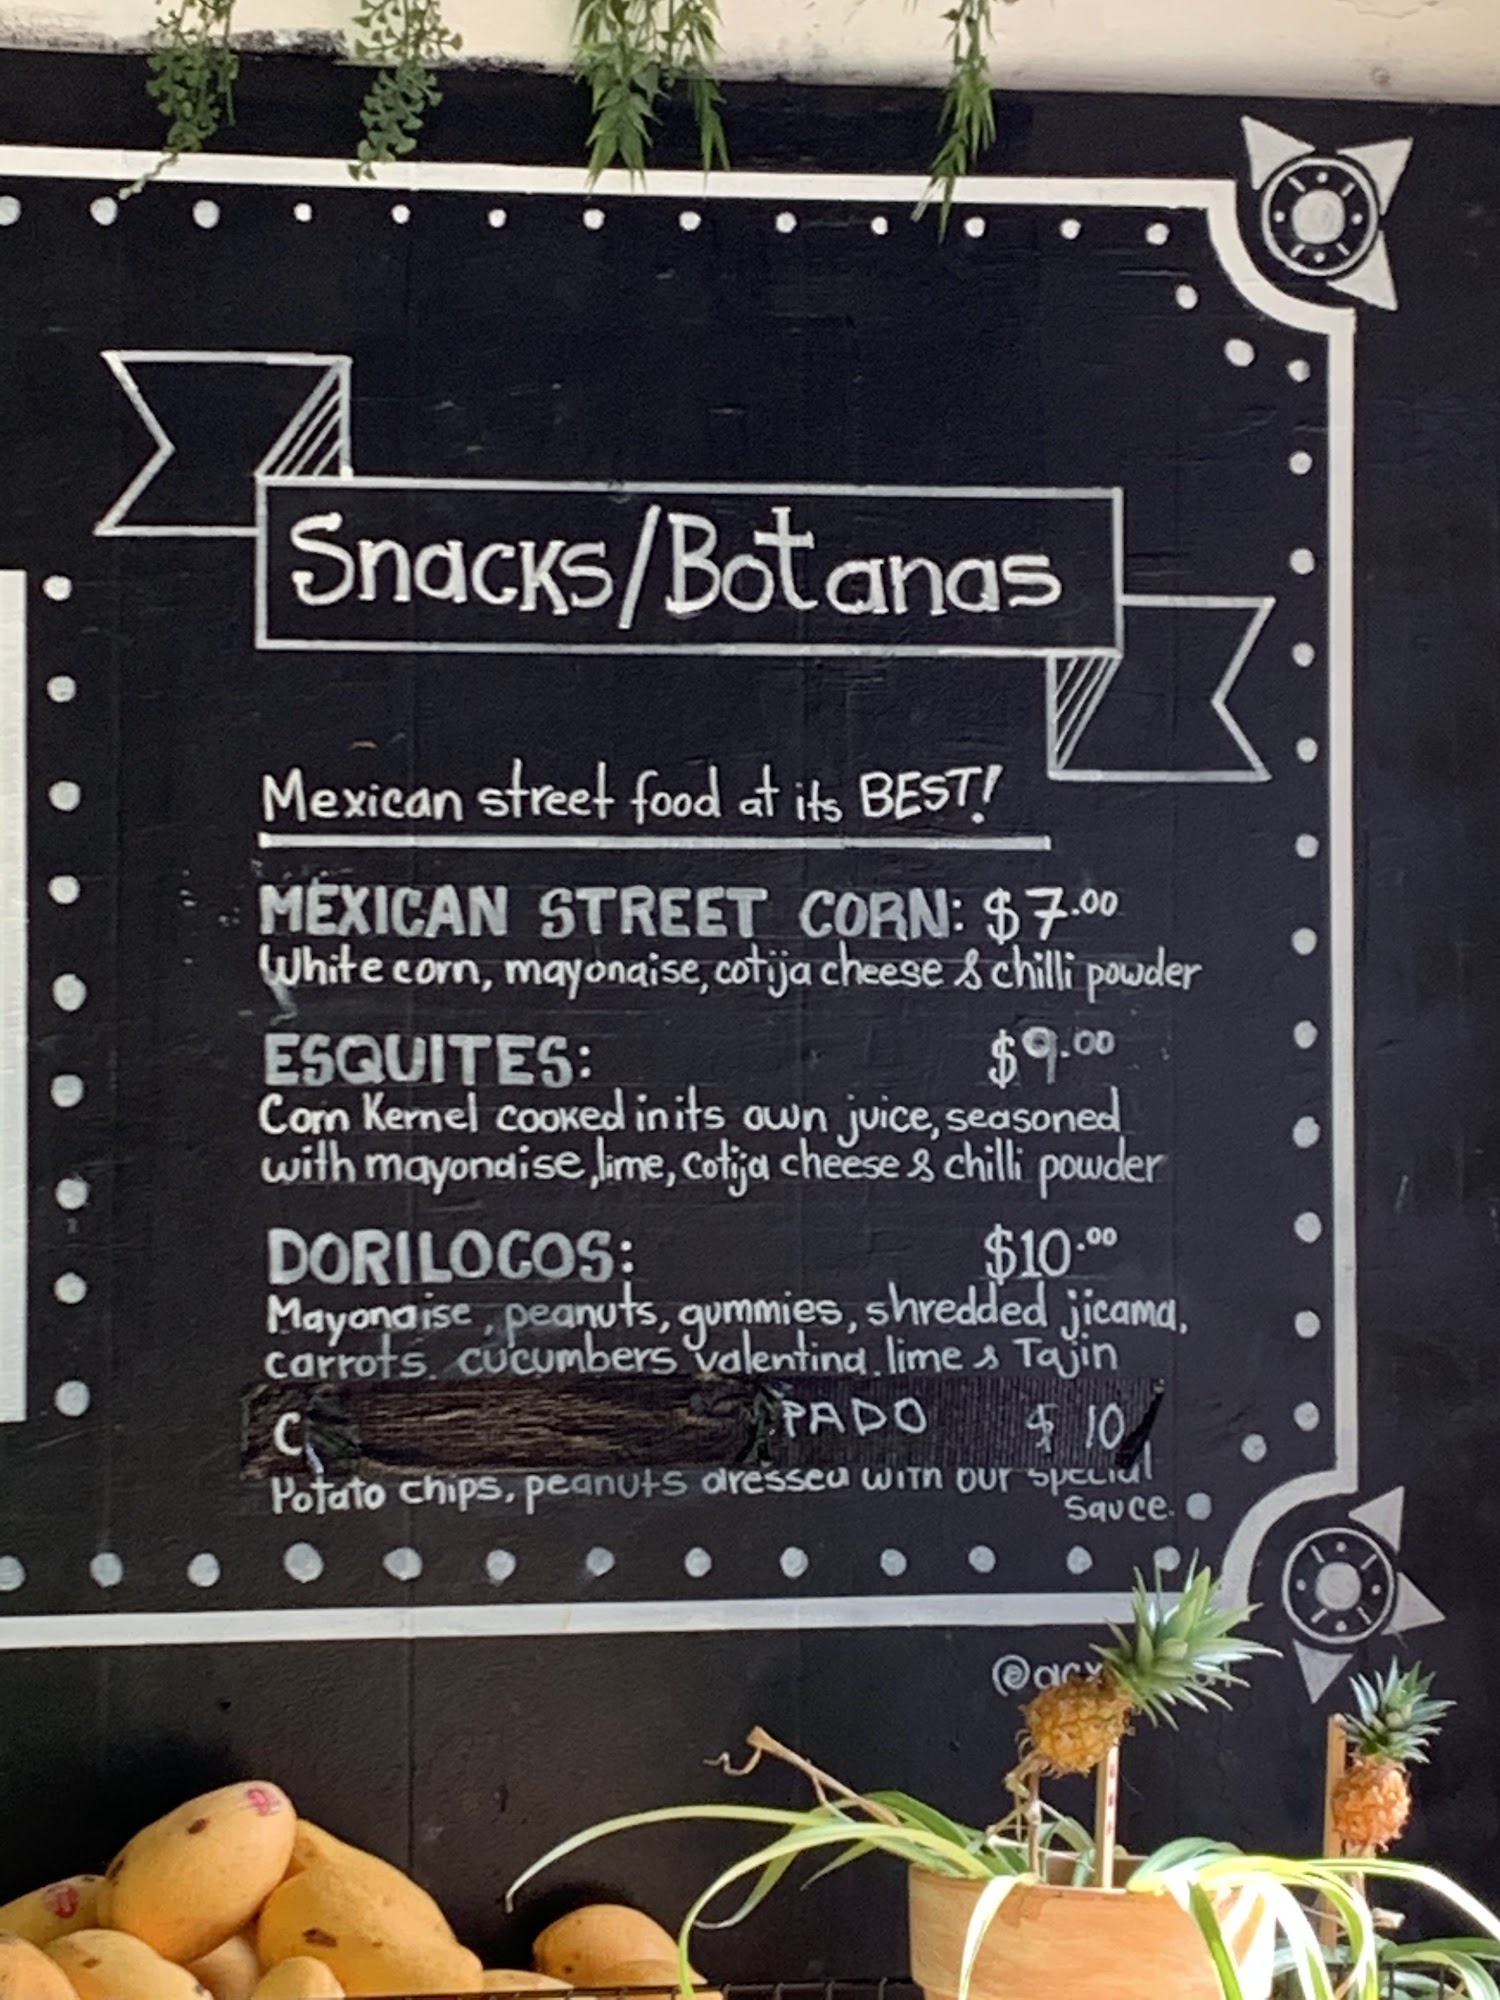 Snacks/Botanas
Mexican street food at its BEST!
MEXICAN STREET CORN: $7.00
White corn, mayonaise, cotija cheese & chilli powder
ESQUITES: $9.00
Corn Kernel cooked in its own juice, seasoned
with mayonaise, lime, cotija cheese & chilli powder
DORILOCOS: $10.00
Mayonaise, peanuts, gummies, shredded jicama,
carrots, cucumbers, valentina, lime & Tajin
$10
Potato chips, peanuts dressed with our special
sauce.